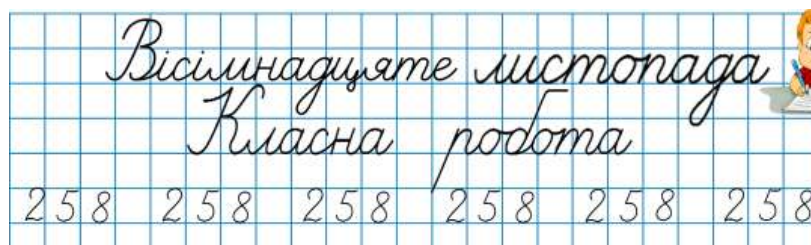 Вісімнадцяте листопада
Класна робота
258 258 258 258 258 258